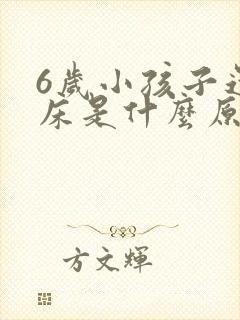 6歲小孩子
床是什麼原
方文輝